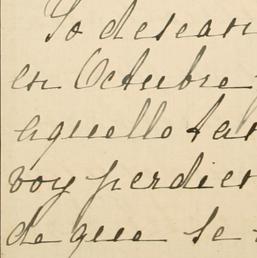 Yo desear
en Octubre
aquello tar
voy perdien
de que se